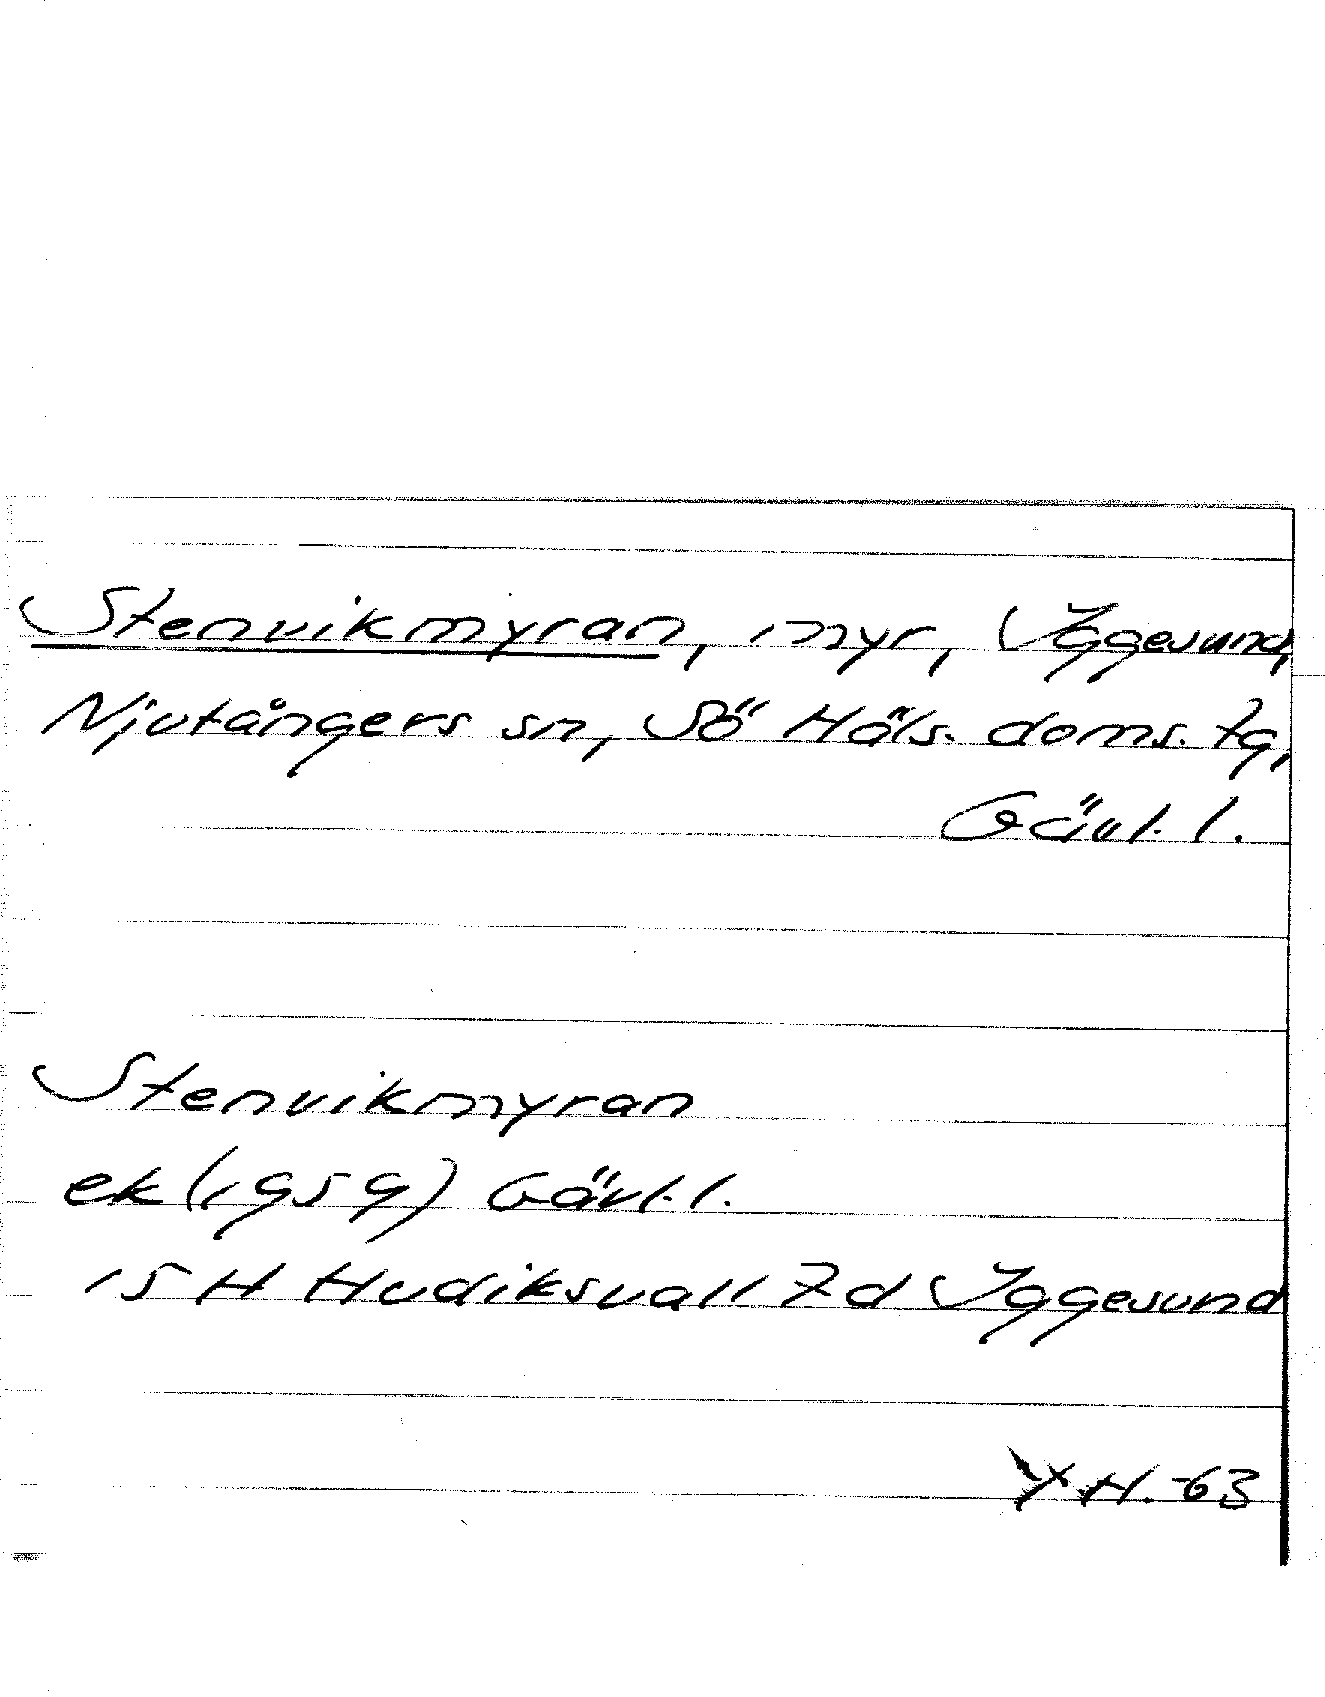 Stenvikmyran, myr, Iggesund,
Njutångers sn, Sö Häls. doms. tg,
Gävl. l.
Stenvikmyran
ek (1959) Gävl. l.
15 H Hudiksvall 7d Iggesund
H. -63